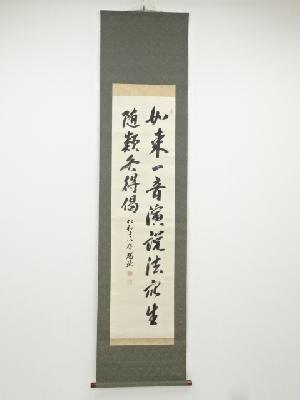 如来一音演説法衆生
随類各得偈